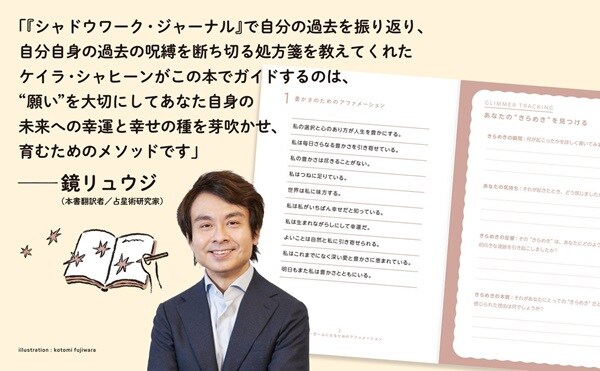 「『シャドウワーク・ジャーナル』で自分の過去を振り返り、
自分自身の過去の呪縛を断ち切る処方箋を教えてくれた
ケイラ・シャヒーンがこの本でガイドするのは、
“願い”を大切にしてあなた自身の
未来への幸運と幸せの種を芽吹かせ、
育むためのメソッドです」
――鏡リュウジ
（本書翻訳者／占星術研究家）
illustration : kotomi fujiwara
1 豊かさのためのアファメーション
私の選択と心のあり方が人生を豊かにする。
私は毎日さらなる豊かさを引き寄せている。
私の豊かさは尽きることがない。
私はつねに足りている。
世界は私に味方する。
私は私がいちばん幸せだと知っている。
私は生まれながらにして幸運だ。
よいことは自然と私に引き寄せられる。
私はこれまでになく深い愛と豊かさに恵まれている。
明日もまた私は豊かさとともにいる。
GLIMMER TRACKING
あなたの“きらめき”を見つける
きらめきの瞬間：
あなたの気持ち：それが起きたとき、どう感じました
きらめきの反響：その“きらめき”は、あなたにどのよう
きらめきの本質：それがあなたにとっての“きらめき”だと
感じられた理由は何でしょうか？